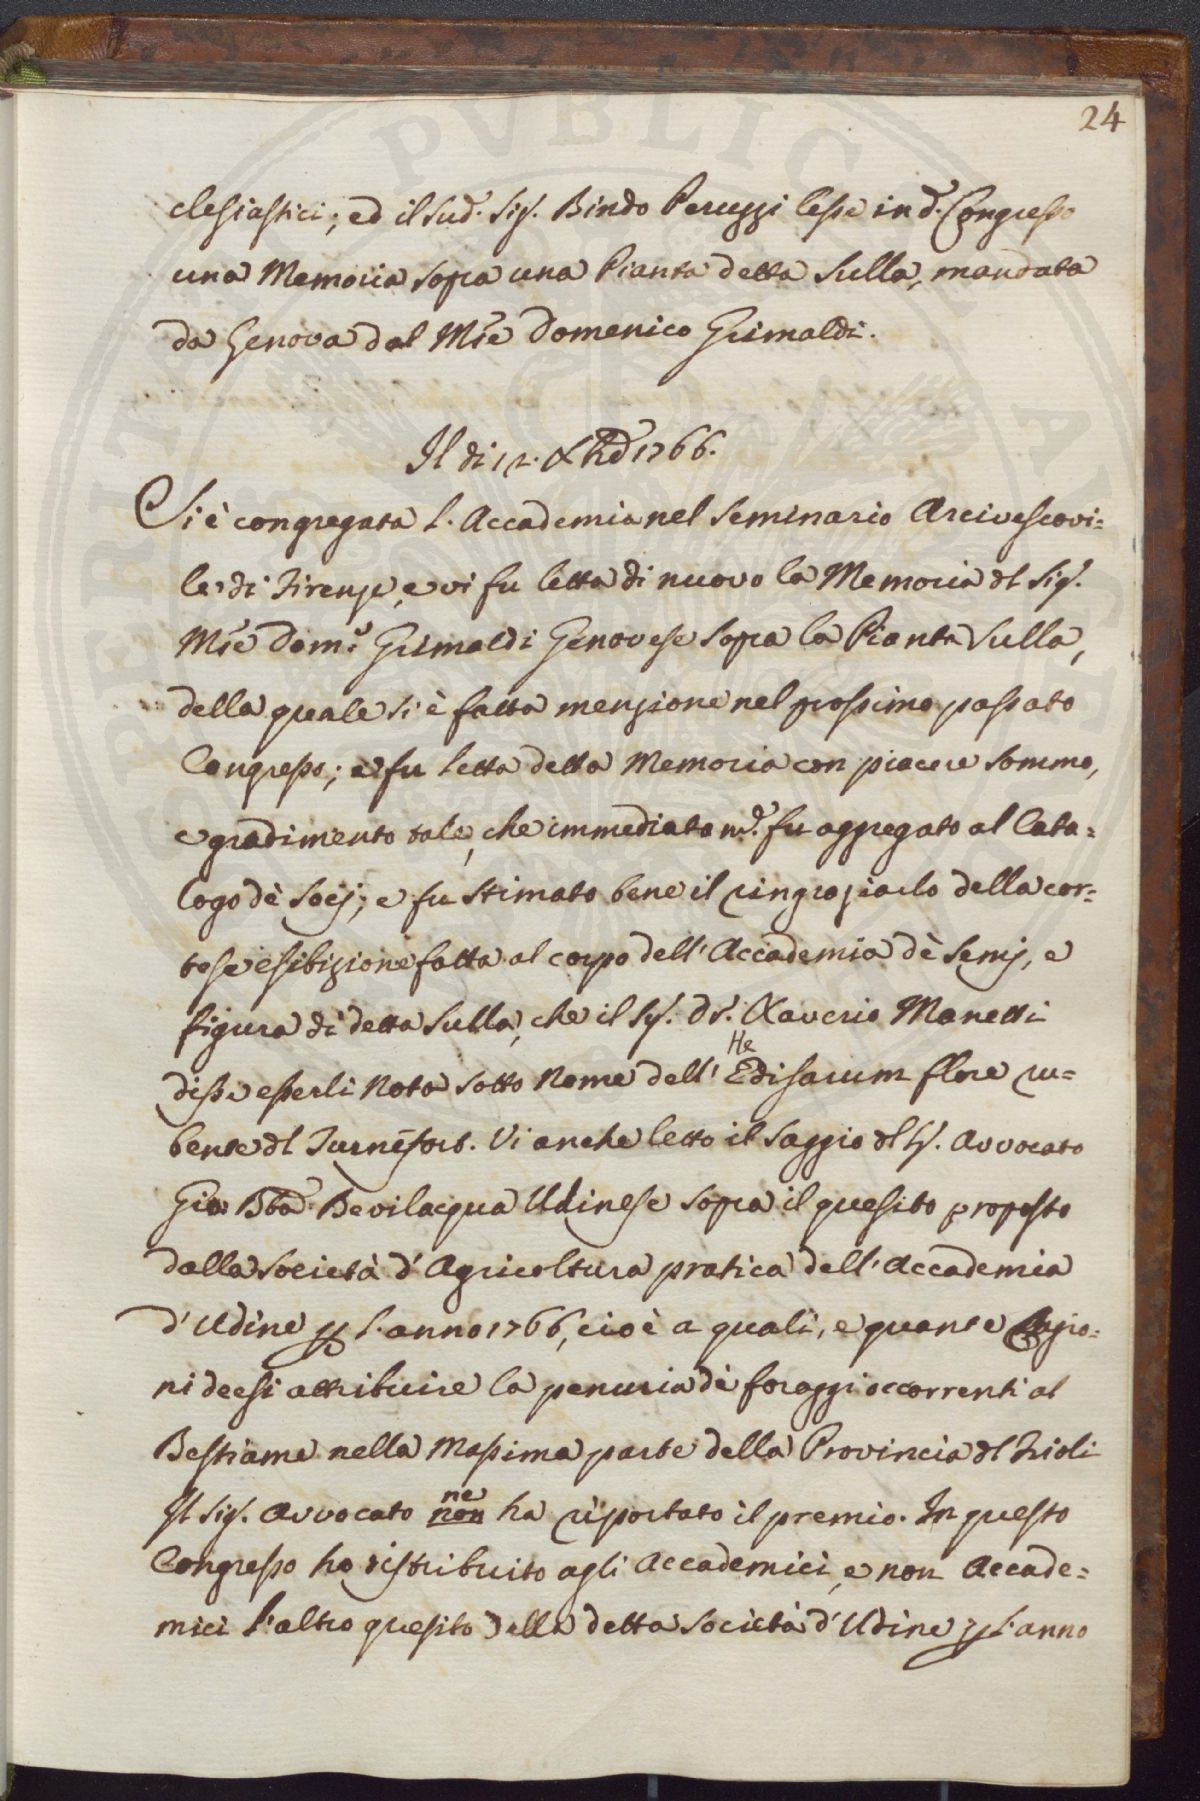 24
clesiastici; ed il sud. Sig. Bindo Peruzzi lesse in d. Congresso
una Memoria sopra una Pianta detta Sulla, mandata
da Genova dal Mse Domenico Grimaldi.
Il di 12. Xbre 1766.
Si è congregata l'Accademia nel Seminario Arcivescovi=
le di Firenze, e vi fu letta di nuovo la Memoria dl Sig.
Mse Dom.co Grimaldi Genovese sopra la Pianta Sulla,
della quale si è fatta menzione nel prossimo passato
Congresso; e fu letta detta Memoria con piacere sommo,
e gradimento tale, che immediatam.e fu aggregato al Cata=
logo dè Socj; e fu stimato bene il ringraziarlo della cor=
tese esibizione fatta al corpo dell'Accademia dè Semj, e
figura di detta Sulla, che il Sig. Dr. Xaverio Manetti
disse esserli nota sotto nome dell' HeEdisarum flore ru=
bente dl Turnefort. Vi anche letto il saggio dl Sig. Avvocato
Gio Bta. Bevilacqua Udinese sopra il quesito proposto
dalla Società d'Agricoltura pratica dell'Accademia
d'Udine p l'anno 1766, cioè a quali, e quante Cagio=
ni deesi attribuire la penuria dè foraggi occorrenti al
Bestiame nella Massima parte della Provincia dl Frioli
Il Sig. Avvocato non ne ha riportato il premio. In questo
Congresso ho distribuito agli Accademici, e non Accade=
mici l'altro quesito della detta Società d'Udine p l'anno